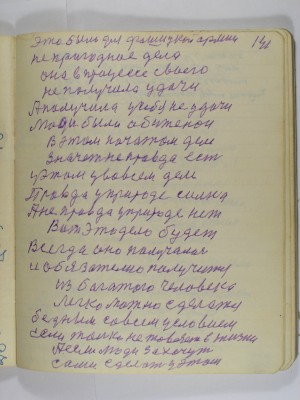 Это было для фашицкой армии 140
не пригодное дело
она в процессе своего
не получила удачи
А получила учебу не удачи
Люди были обиженои
В этом початом деи
Значит не правда ест
у этом у вовсем деи
Правда у природе силна
А не правда у природе нет
Вот это дело будет
Всегда оно получалас
и обязателно получитц
из багатого человека
легко можно сделатц
бедным совсем условием
сели толко не товойни в жизни
А если люди захочут
сами сделат у этом